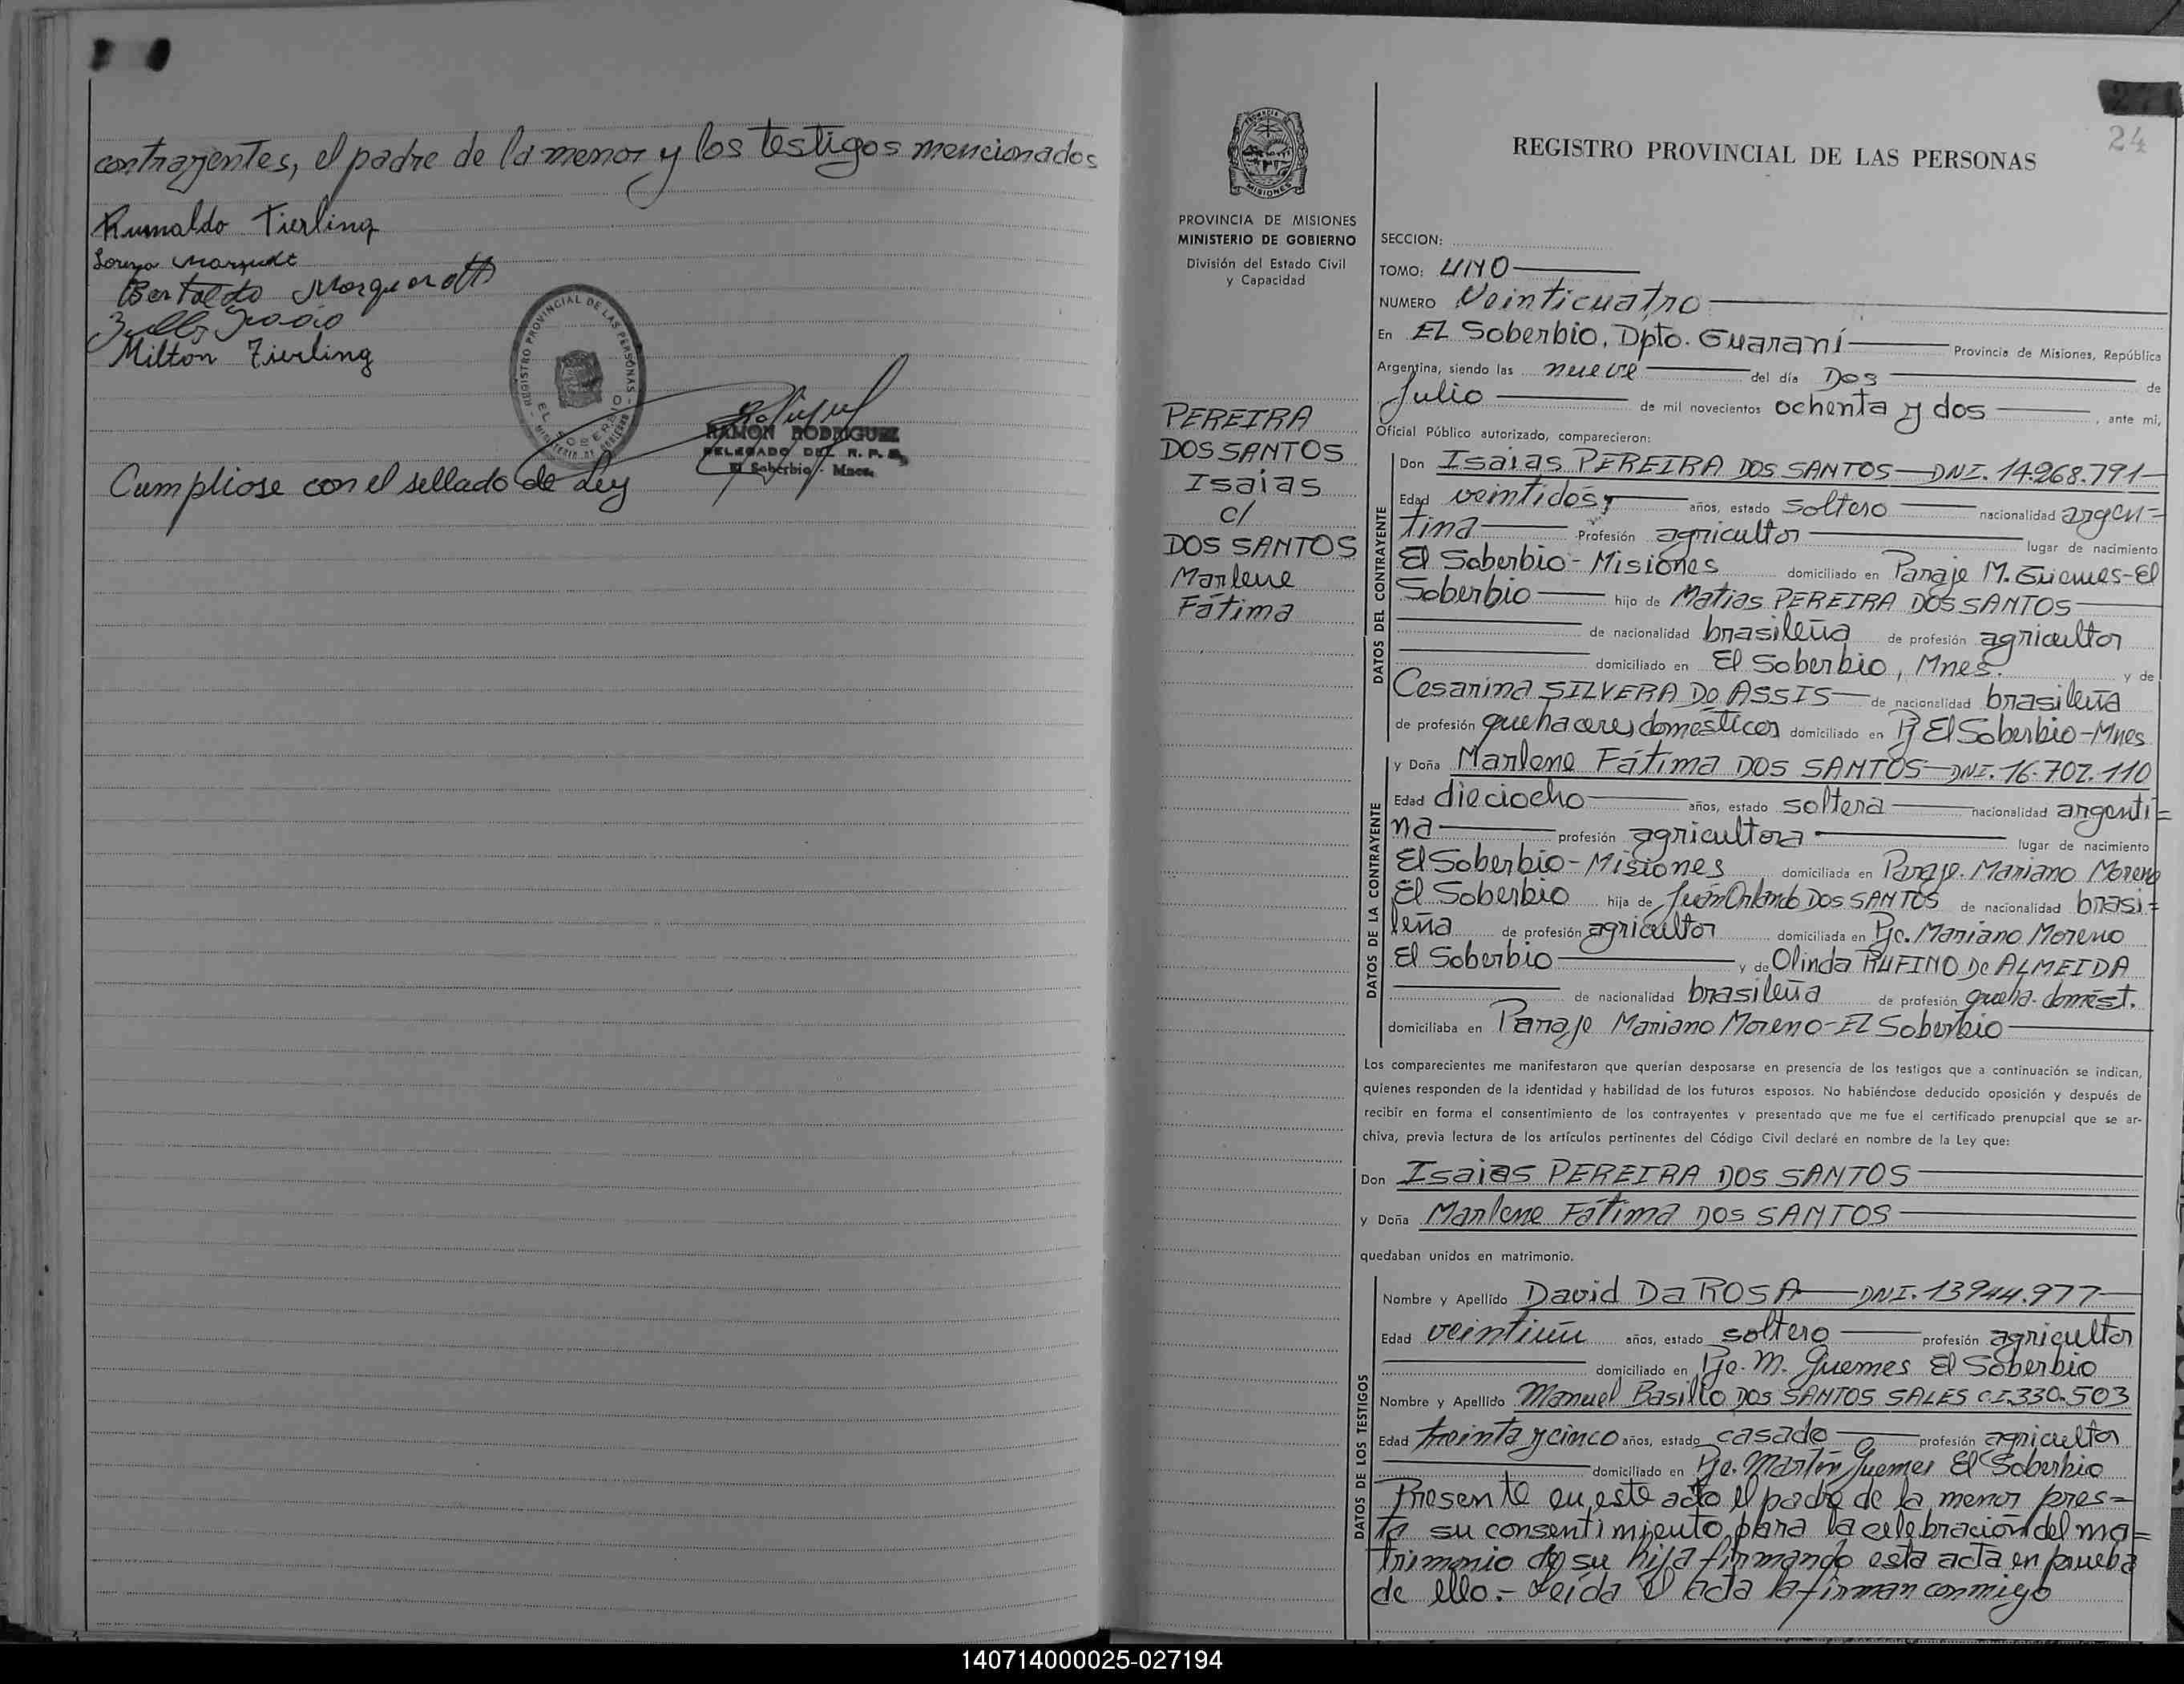 contrayentes, el padre de la menor y los testigos mencionados
Rumaldo Tierling
Lorenzo Marquardt
Bertoldo Marquardt
Milton Tierling
REGISTRO PROVINCIAL DE LAS PERSONAS
EL SOBERBIO
RAMON RODRIGUEZ
DELEGADO DEL R. P. P.
El Soberbio - Mnes.
Cumpliose con el sellado de Ley
PROVINCIA DE MISIONES
MINISTERIO DE GOBIERNO
División del Estado Civil
y Capacidad
PEREIRA
DOS SANTOS
Isaias
c/
DOS SANTOS
Marlene
Fátima
24
REGISTRO PROVINCIAL DE LAS PERSONAS
SECCION:
TOMO: UNO
NUMERO Veinticuatro
En El Soberbio, Dpto. Guaraní Provincia de Misiones, República
Argentina, siendo las nueve del día Dos de
Julio de mil novecientos ochenta y dos, ante mi,
Oficial Público autorizado, comparecieron:
DATOS DEL CONTRAYENTE
Don Isaias PEREIRA DOS SANTOS DNI. 14.268.791
Edad veintidós años, estado soltero nacionalidad argen=
tina Profesión agricultor lugar de nacimiento
El Soberbio - Misiones domiciliado en Paraje M. Güemes - El
Soberbio hijo de Matias PEREIRA DOS SANTOS
de nacionalidad brasileña de profesión agricultor
domiciliado en El Soberbio, Mnes. y de
Cesarina SILVERA DO ASSIS de nacionalidad brasileña
de profesión quehaceres domesticos domiciliado en El Soberbio - Mnes
DATOS DE LA CONTRAYENTE
y Doña Marlene Fátima DOS SANTOS DNI. 16.702.110
Edad dieciocho años, estado soltera nacionalidad argenti=
na profesión agricultora lugar de nacimiento
El Soberbio - Misiones domiciliada en Paraje Mariano Moreno
El Soberbio hija de Juan Orlando DOS SANTOS de nacionalidad brasi=
leña de profesión agricultor domiciliada en Pje. Mariano Moreno
El Soberbio y de Olinda RUFINO De ALMEIDA
de nacionalidad brasileña de profesión queha. domést.
domiciliaba en Paraje Mariano Moreno - El Soberbio
Los comparecientes me manifestaron que querían desposarse en presencia de los testigos que a continuación se indican,
quienes responden de la identidad y habilidad de los futuros esposos. No habiéndose deducido oposición y después de
recibir en forma el consentimiento de los contrayentes y presentado que me fue el certificado prenupcial que se ar-
chiva, previa lectura de los artículos pertinentes del Código Civil declaré en nombre de la Ley que:
Don Isaias PEREIRA DOS SANTOS
y Doña Marlene Fátima DOS SANTOS
quedaban unidos en matrimonio.
DATOS DE LOS TESTIGOS
Nombre y Apellido David Da ROSA DNI. 13944.977
Edad veintiún años, estado soltero profesión agricultor
domiciliado en Pje. M. Guemes El Soberbio
Nombre y Apellido Manuel Basilio DOS SANTOS SALES C.I.330.503
Edad treinta y cinco años, estado casado profesión agricultor
domiciliado en Pje. Martín Guemes El Soberbio
Presente en este acto el padre de la menor pres=
ta su consentimiento para la celebración del ma=
trimonio de su hija firmando esta acta en prueba
de ello.- Leída el acta la firman conmigo
140714000025-027194